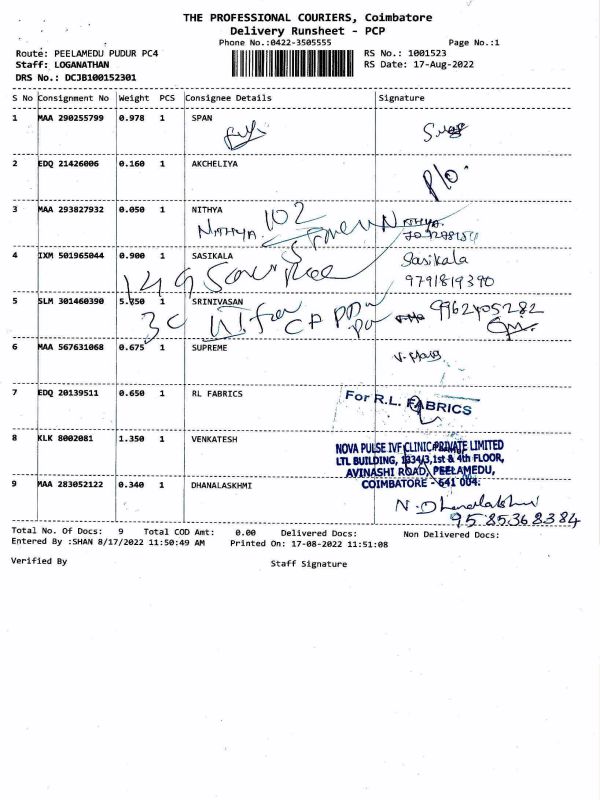 THE PROFESSIONAL COURIERS, Coimbatore
Delivery Runsheet - PCP
Phone No.:0422-3505555 Page No.:1
Route: PEELAMEDU PUDUR PC4 RS No.: 1001523
Staff: LOGANATHAN RS Date: 17-Aug-2022
DRS No.: DCJB100152301
S No Consignment No Weight PCS Consignee Details Signature
1 MAA 290255799 0.978 1 SPAN
2 EDQ 21426006 0.160 1 AKCHELIYA
P/o.
3 MAA 293827932 0.050 1 NITHYA
NITHYA. 102 NITHYA.
4 IXM 501965044 0.900 1 SASIKALA Sasikala
149 9791819390
5 SLM 301460390 5.750 1 SRINIVASAN 9962405282
3C
6 MAA 567631068 0.675 1 SUPREME
7 EDQ 20139511 0.650 1 RL FABRICS
For R.L. FABRICS
8 KLK 8002081 1.350 1 VENKATESH
NOVA PULSE IVF CLINIC PRIVATE LIMITED
LTL BUILDING, 1334/3,1st & 4th FLOOR,
AVINASHI ROAD, PEELAMEDU,
COIMBATORE - 641 004.
9 MAA 283052122 0.340 1 DHANALASKHMI
N. Dhanalakshmi
9585368384
Total No. Of Docs: 9 Total COD Amt: 0.00 Delivered Docs: Non Delivered Docs:
Entered By :SHAN 8/17/2022 11:50:49 AM Printed On: 17-08-2022 11:51:08
Verified By Staff Signature